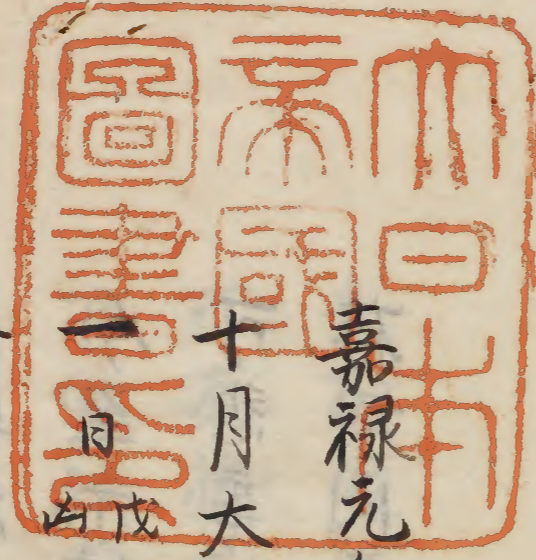 大日本
帝國
圖書印
嘉禄元
十月大
一日戊